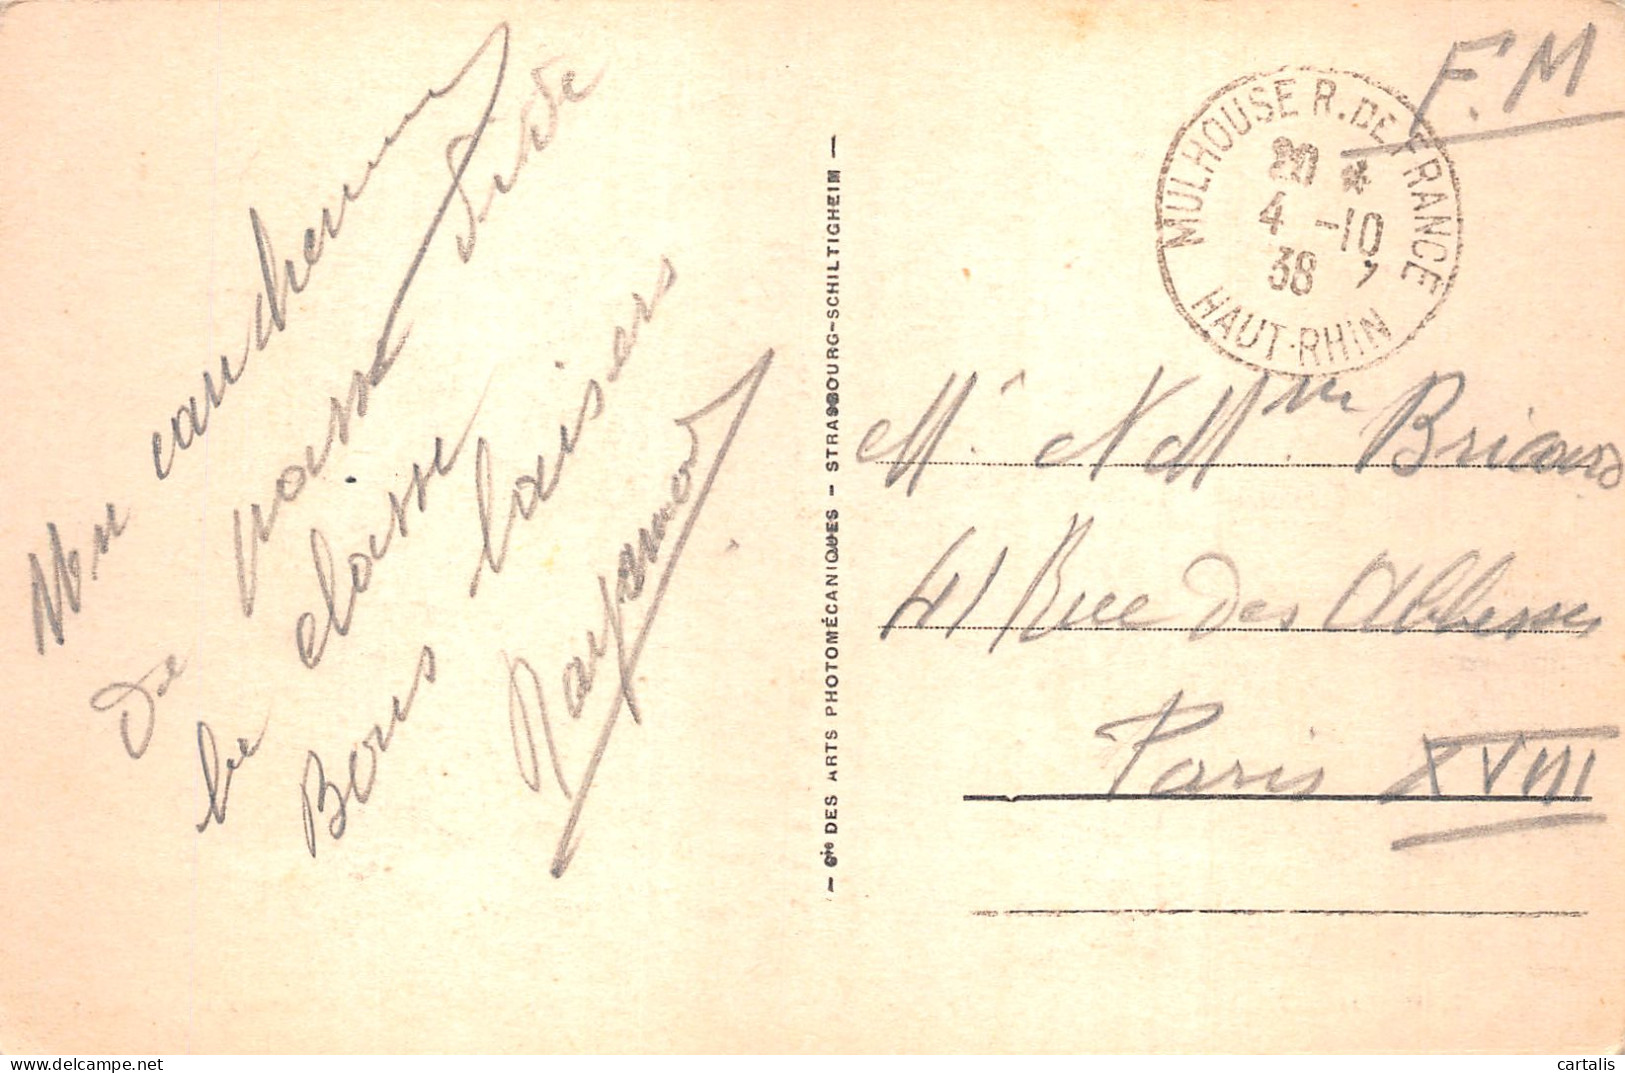 Mon cauchemar
de
passe
le
classe
Bons baisers
Raymond
- Cie DES ARTS PHOTOMÉCANIQUES - STRASBOURG-SCHILTIGHEIM -
F.M
MULHOUSE R. DE FRANCE
20 *
4 -10
38
HAUT-RHIN
Mr & Mme Briard
41 Rue des Abbesses
Paris XVIII
cartalis